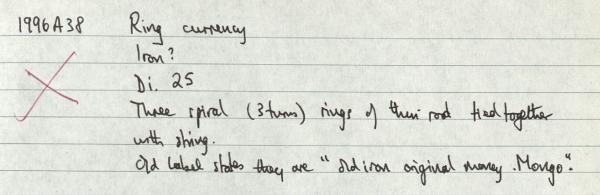 1996A38 Ring currency
Iron?
Di. 25
Three spiral (3 turns) rings of thin rod tied together
with string.
Old label states they are "old iron original money. Mongo".